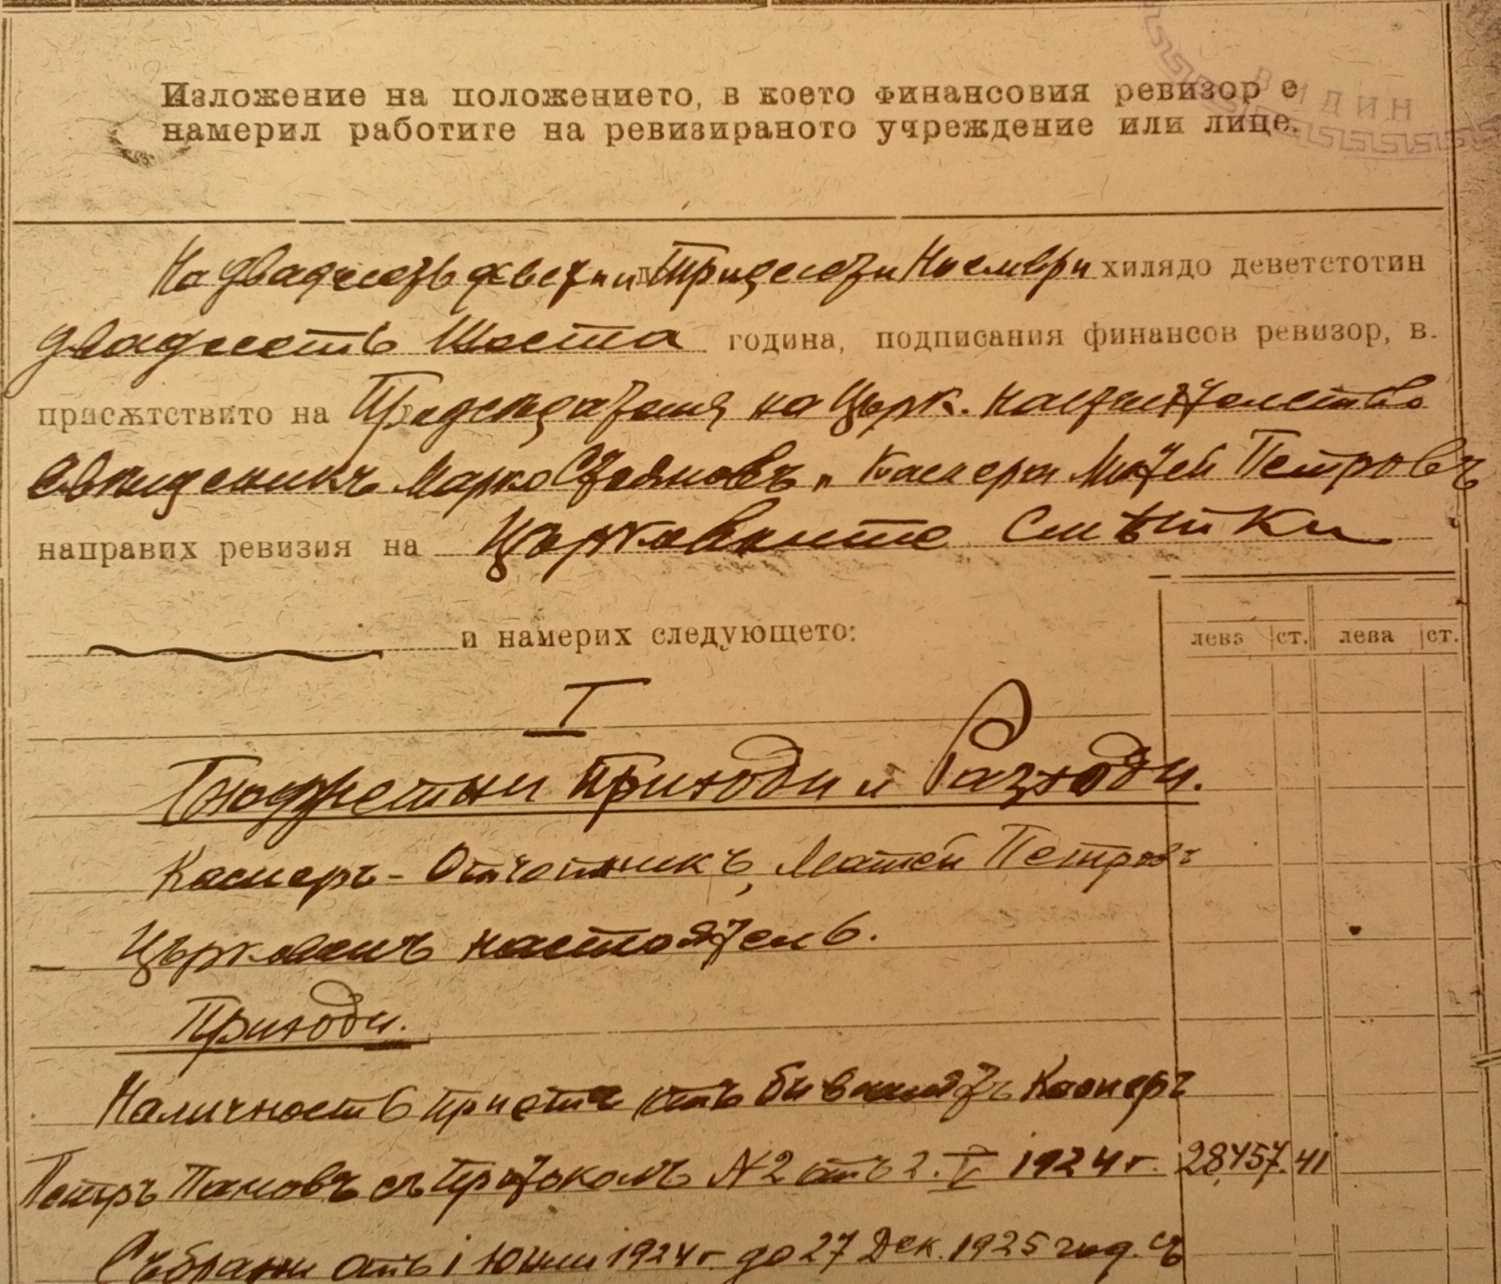 ВИДИН
Изложение на положението, в което финансовия ревизор е
намерил работите на ревизираното учреждение или лице.
На двадесеть девети и Тридесети Ноември хилядо деветстотин
двадесеть Шеста година, подписания финансов ревизор, в.
присѫтствито на Председателя на Църк. настоятелство
Свещеникъ Марко Стояновъ и Касиера Матей Петровъ
направих ревизия на Църковните Смѣтки
и намерих следующето:
лева ст. лева ст.
I
Бюджетни Приходи и Разходи.
Касиеръ - Отчетникъ, Матей Петровъ
Църковенъ настоятель.
Приходи.
Наличность приета отъ бившиятъ Касиеръ
Петръ Пановъ съ Протоколъ № 2 отъ 2. V 1924 г. 28,457.41
Събрани отъ 1 Юни 1924 г. до 27 Дек. 1925 год. съ